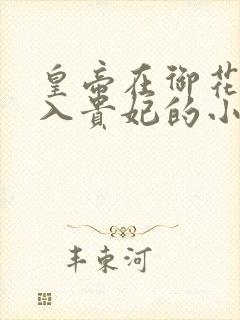 皇帝在御花
入贵妃的小
丰东河